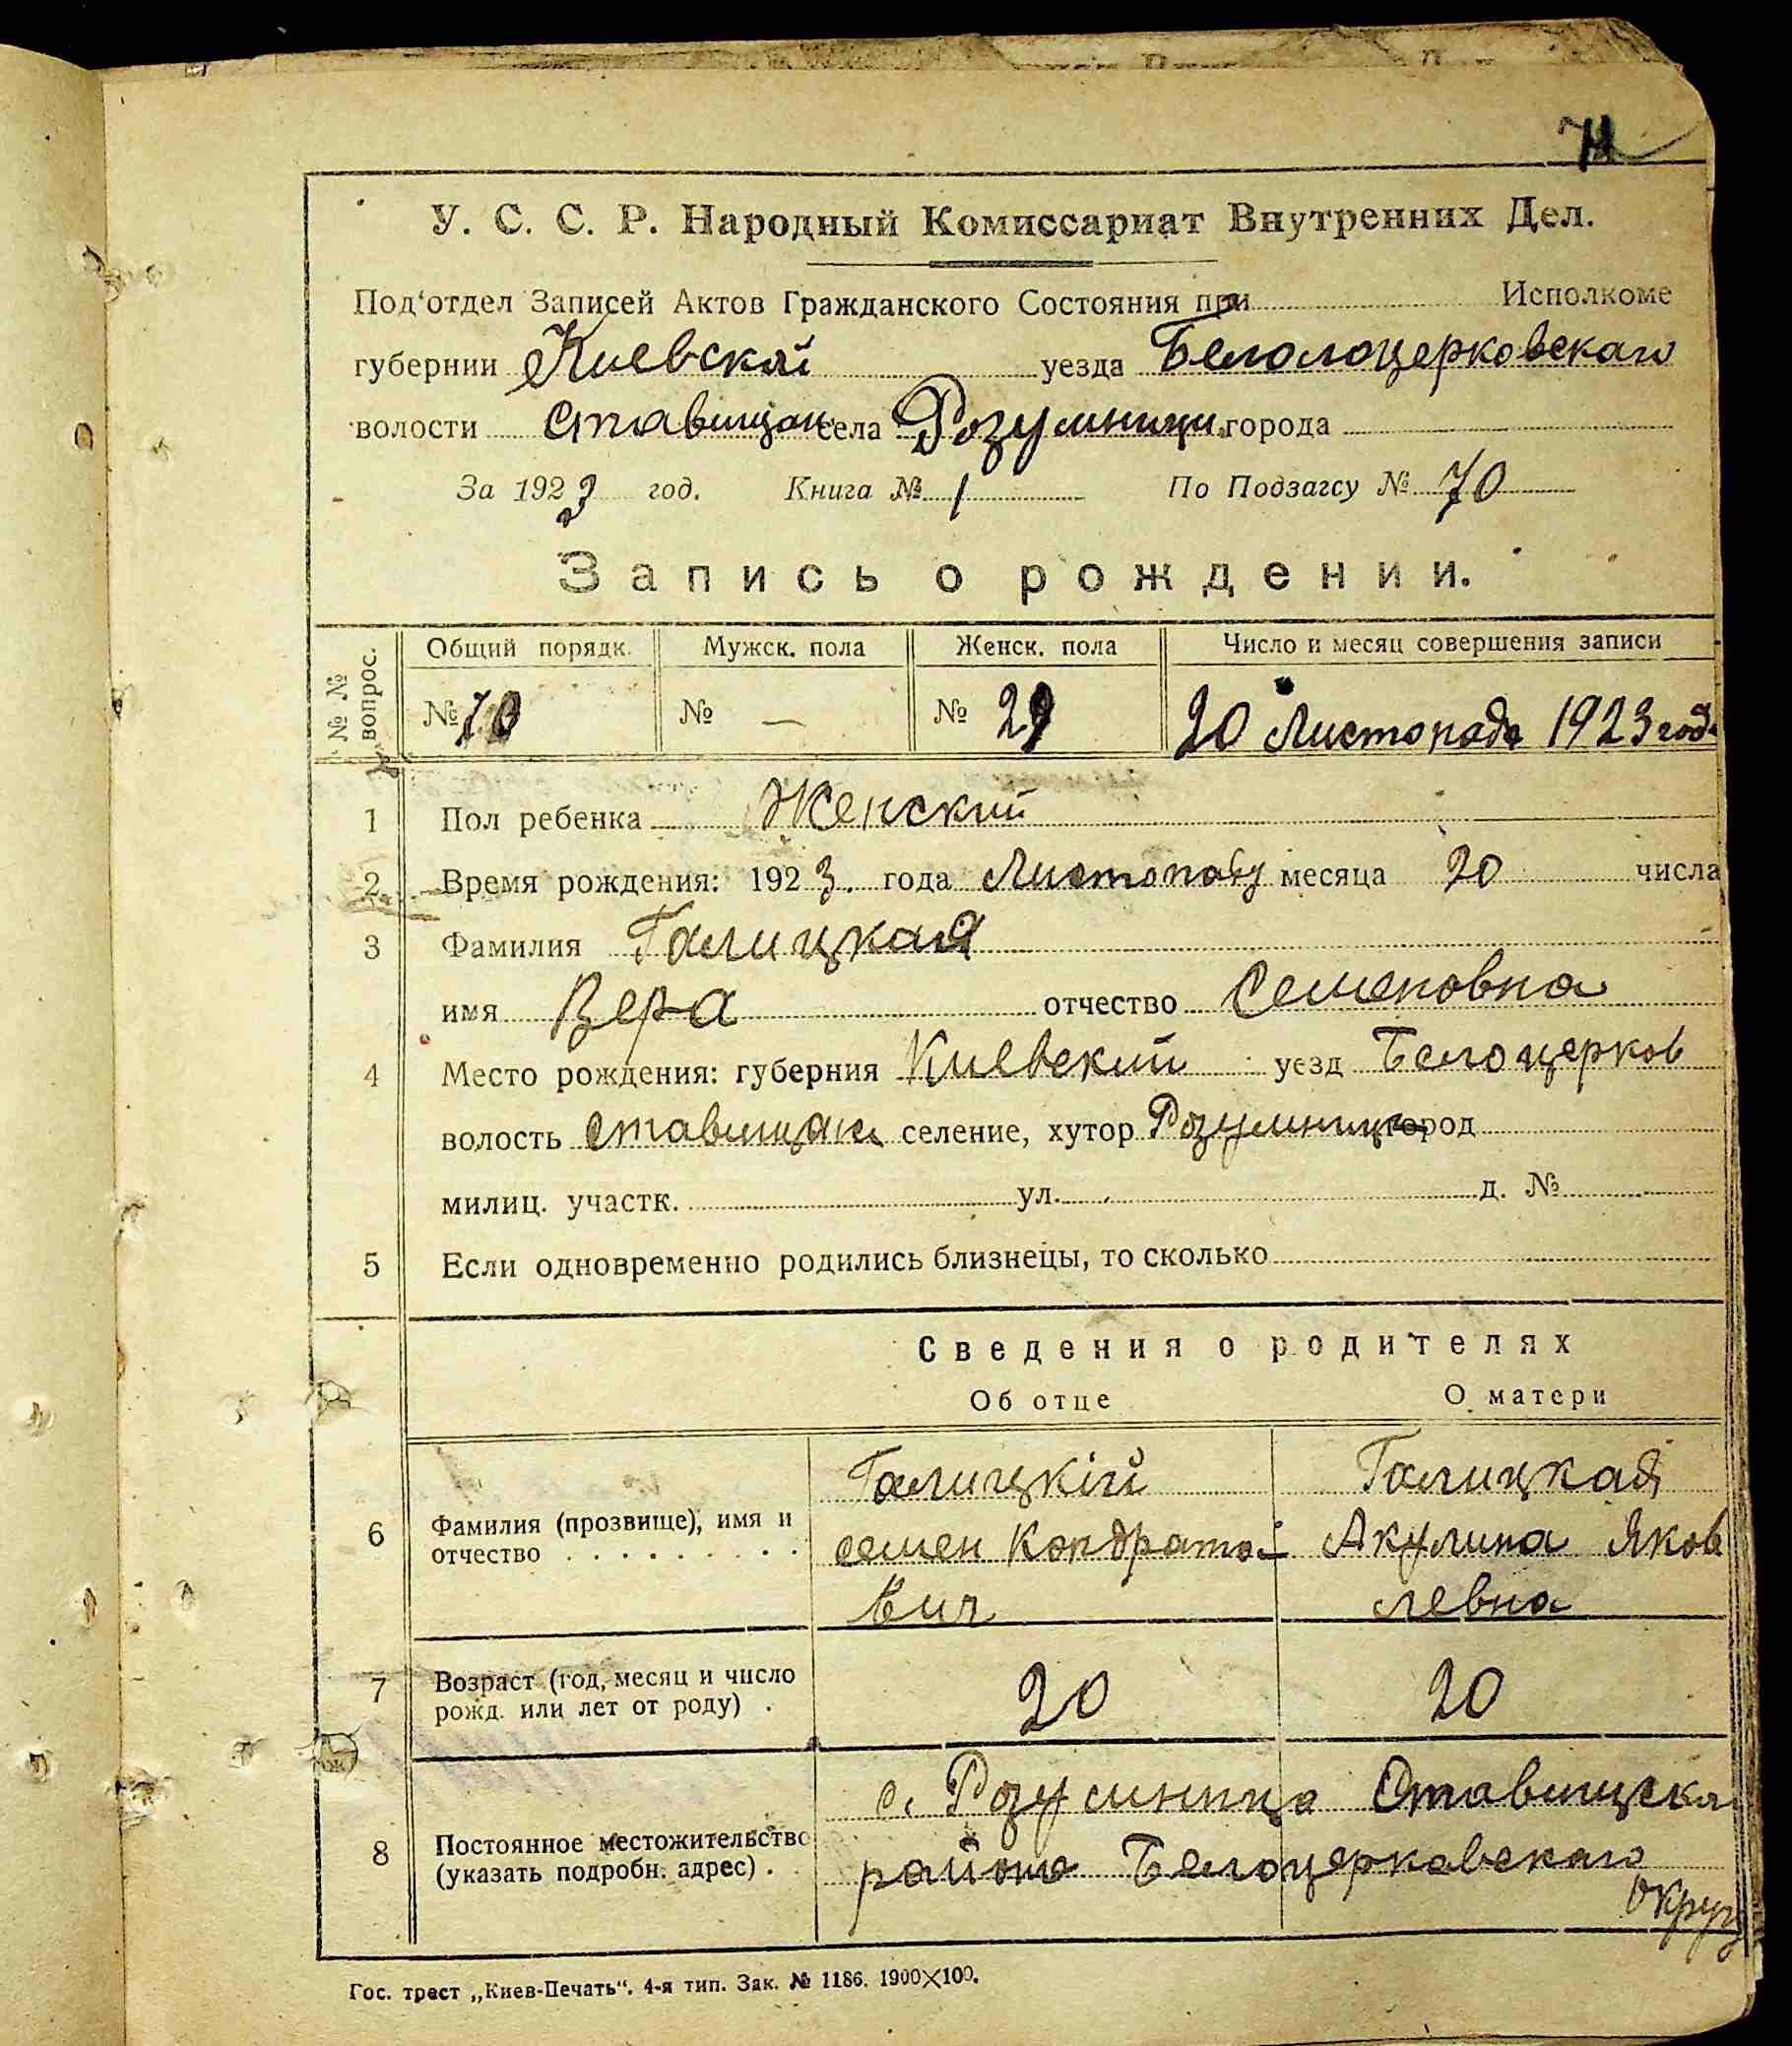 У. С. С. Р. Народный Комиссариат Внутренних Дел.
Под'отдел Записей Актов Гражданского Состояния при Исполкоме
губернии Киевской уезда Белолоцерковскаго
волости Ставищан села Розумници города
За 1923 год. Книга № 1 По Подзагсу № 70
Запись о рождении.
№ № вопрос. Общий порядк. Мужск. пола Женск. пола Число и месяц совершения записи
№ 70 № — № 29 20 Листопада 1923 года
1 Пол ребенка Женский
2 Время рождения: 1923. года Листопаду месяца 20 числа
3 Фамилия Галицкая
имя Вера отчество Семеновна
4 Место рождения: губерния Киевский уезд Белоцерков
волость Ставищан селение, хутор Розумници город
милиц. участк. ул. д. №
5 Если одновременно родились близнецы, то сколько
Сведения о родителях
Об отце О матери
Галицкій Галицкая
6 Фамилия (прозвище), имя и отчество семен Кондрато- Акулина Яков
вич левна
7 Возраст (год, месяц и число рожд. или лет от роду) . 20 20
с. Розумница Ставищска
8 Постоянное местожительство (указать подробн. адрес) . района Белоцерковскаго
округ
Гос. трест „Киев-Печать“. 4-я тип. Зак. № 1186. 1900×100.